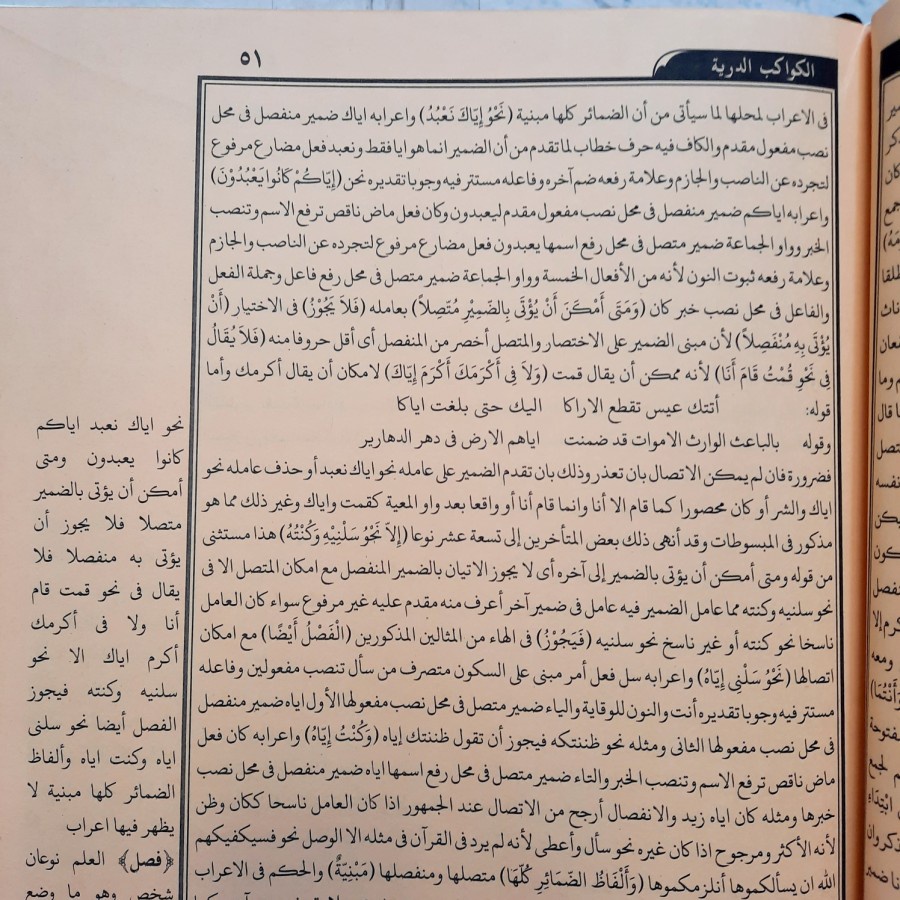 الكواكب الدرية
٥١
فى الاعراب لمحلها لما سيأتى من أن الضمائر كلها مبنية (نَحْوُ إِيَّاكَ نَعْبُدُ) واعرابه اياك ضمير منفصل فى محل
نصب مفعول مقدم والكاف فيه حرف خطاب لما تقدم من أن الضمير انما هو ايا فقط ونعبد فعل مضارع مرفوع
لتجرده عن الناصب والجازم وعلامة رفعه ضم آخره وفاعله مستتر فيه وجوبا تقديره نحن (إِيَّاكُمْ كَانُوا يَعْبُدُوْنَ)
واعرابه اياكم ضمير منفصل فى محل نصب مفعول مقدم ليعبدون وكان فعل ماض ناقص ترفع الاسم وتنصب
الخبر وواو الجماعة ضمير متصل فى محل رفع اسمها يعبدون فعل مضارع مرفوع لتجرده عن الناصب والجازم
وعلامة رفعه ثبوت النون لأنه من الأفعال الخمسة وواو الجماعة ضمير متصل فى محل رفع فاعل وجملة الفعل
والفاعل فى محل نصب خبر كان (وَمَتَى أَمْكَنَ أَنْ يُؤْتَى بِالضَّمِيْرِ مُتَّصِلاً) بعامله (فَلاَ يَجُوْزُ) فى الاختيار (أَنْ
يُؤْتَى بِهِ مُنْفَصِلاً) لأن مبنى الضمير على الاختصار والمتصل أخصر من المنفصل أى أقل حروفا منه (فَلاَ يُقَالُ
فِى نَحْوِ قُمْتُ قَامَ أَنَا) لأنه ممكن أن يقال قمت (وَلاَ فِى أَكْرَمَكَ أَكْرَمَ إِيَّاكَ) لامكان أن يقال أكرمك وأما
قوله: أتتك عيس تقطع الاراكا اليك حتى بلغت اياكا
وقوله بالباعث الوارث الاموات قد ضمنت اياهم الارض فى دهر الدهارير
فضرورة فان لم يمكن الاتصال بان تعذر وذلك بان تقدم الضمير على عامله نحو اياك نعبد أو حذف عامله نحو
اياك والشر أو كان محصورا كما قام الا أنا وانما قام أنا أو واقعا بعد واو المعية كقمت واياك وغير ذلك مما هو
مذكور فى المبسوطات وقد أنهى ذلك بعض المتأخرين إلى تسعة عشر نوعا (إِلاَّ نَحْوُ سَلْنِيْهِ وَكُنْتُهُ) هذا مستثنى
من قوله ومتى أمكن أن يؤتى بالضمير إلى آخره أى لا يجوز الاتيان بالضمير المنفصل مع امكان المتصل الا فى
نحو سلنيه وكنته مما عامل الضمير فيه عامل فى ضمير آخر أعرف منه مقدم عليه غير مرفوع سواء كان العامل
ناسخا نحو كنته أو غير ناسخ نحو سلنيه (فَيَجُوْزُ) فى الهاء من المثالين المذكورين (الْفَصْلُ أَيْضًا) مع امكان
اتصالها (نَحْوُ سَلْنِى إِيَّاهُ) واعرابه سل فعل أمر مبنى على السكون متصرف من سأل تنصب مفعولين وفاعله
مستتر فيه وجوبا تقديره أنت والنون للوقاية والياء ضمير متصل فى محل نصب مفعولها الأول اياه ضمير منفصل
فى محل نصب مفعولها الثانى ومثله نحو ظننتكه فيجوز أن تقول ظننتك إياه (وَكُنْتُ إِيَّاهُ) واعرابه كان فعل
ماض ناقص ترفع الاسم وتنصب الخبر والتاء ضمير متصل فى محل رفع اسمها اياه ضمير منفصل فى محل نصب
خبرها ومثله كان اياه زيد والانفصال أرجح من الاتصال عند الجمهور اذا كان العامل ناسخا ككان وظن
لأنه الأكثر ومرجوح اذا كان غيره نحو سأل وأعطى لأنه لم يرد فى القرآن فى مثله الا الوصل نحو فسيكفيكهم
الله ان يسألكموها أنلزمكموها (وَأَلْفَاظُ الضَّمَائِرِ كُلُّهَا) متصلها ومنفصلها (مَبْنِيَّةٌ) والحكم فى الاعراب
نحو اياك نعبد اياكم
كانوا يعبدون ومتى
أمكن أن يؤتى بالضمير
متصلا فلا يجوز أن
يؤتى به منفصلا فلا
يقال فى نحو قمت قام
أنا ولا فى أكرمك
أكرم اياك الا نحو
سلنيه وكنته فيجوز
الفصل أيضا نحو سلنى
اياه وكنت اياه وألفاظ
الضمائر كلها مبنية لا
يظهر فيها اعراب
﴿فصل﴾ العلم نوعان
شخصى وهو ما وضع